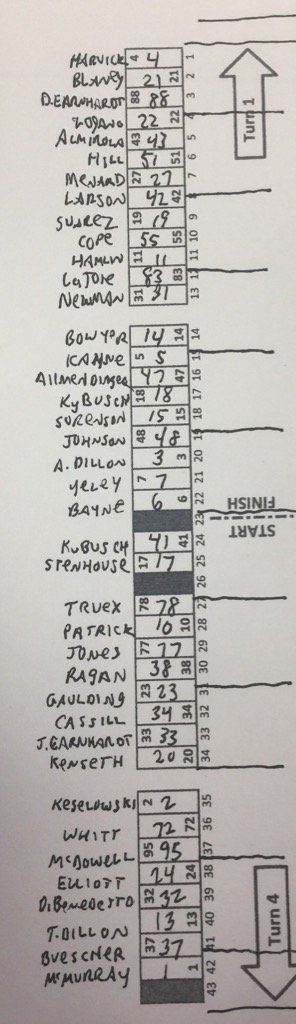 HARVICK 4 4 1
BLANEY 21 21 2
D. EARNHARDT 88 88 3
LOGANO 22 22 4
ALMIROLA 43 43 5
HILL 51 51 6
MENARD 27 27 7
LARSON 42 42 8
SUAREZ 19 19 9
COPE 55 55 10
HAMLIN 11 11 11
LAJOIE 83 83 12
NEWMAN 31 31 13
Turn 1
BOWYOR 14 14 14
KAHNE 5 5 15
Allmendinger 47 47 16
Ky BUSCH 18 18 17
SORENSON 15 15 18
JOHNSON 48 48 19
A. DILLON 3 3 20
YELEY 7 7 21
BAYNE 6 6 22
23
FINISH
START
KuBUSCH 41 41 24
STENHOUSE 17 17 25
26
TRUEX 78 78 27
PATRICK 10 10 28
JONES 77 77 29
RAGAN 38 38 30
GAULDING 23 23 31
CASSILL 34 34 32
J. EARNHARDT 33 33 33
KENSETH 20 20 34
KESELOWSKI 2 2 35
WHITT 72 72 36
McDOWELL 95 95 37
ELLIOTT 24 24 38
DiBenedetto 32 32 39
T. DILLON 13 13 40
BUESCHER 37 37 41
McMURRAY 1 1 42
43
Turn 4